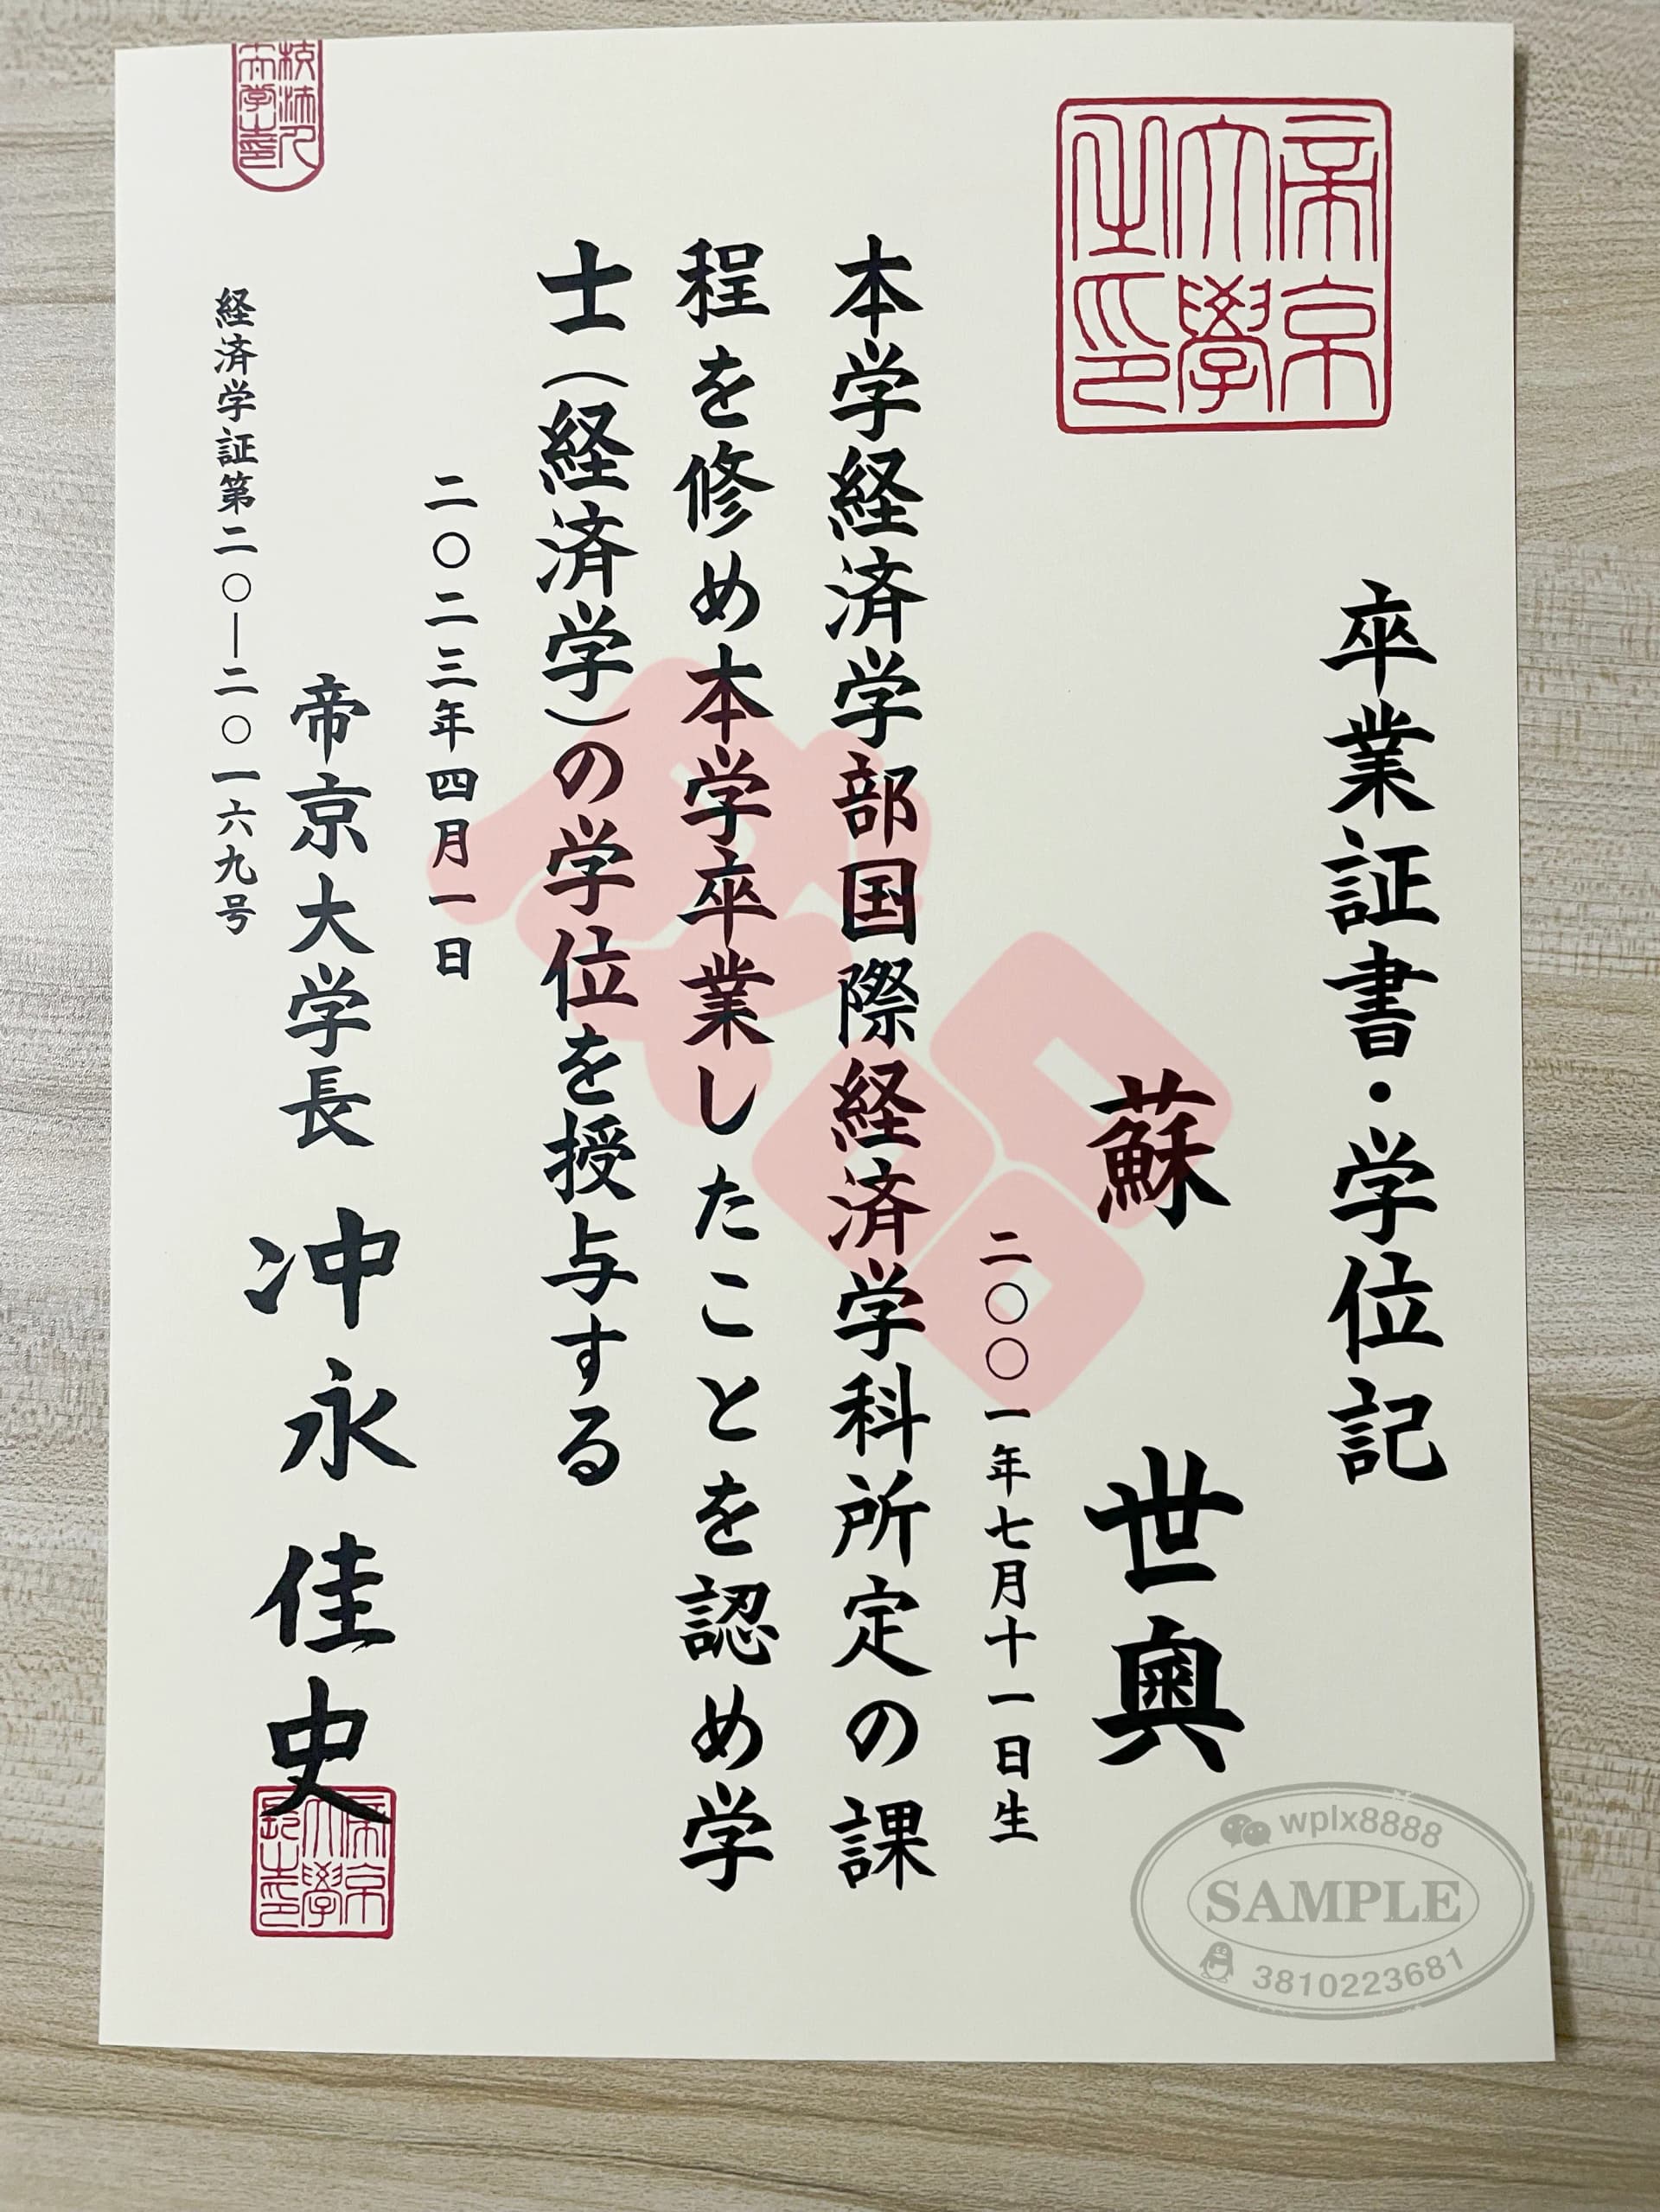 卒業証書・学位記
蘇 世奥
二〇〇一年七月十一日生
本学経済学部国際経済学科所定の課
程を修め本学卒業したことを認め学
士（経済学）の学位を授与する
二〇二三年四月一日
帝京大学長 冲永佳史
経済学証第二〇―二〇一六九号
帝京大學之印
wplx8888
SAMPLE
3810223681